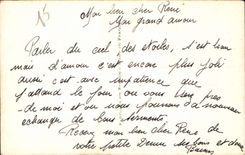 Mon bien cher René
Mon grand amour
Parler du ciel des étoiles, c'est bien
mais d'amour c'est encore plus joli
aussi c'est avec impatience que
j'attend le jour ou vous serez près
de moi et ou nous pourrons à nouveau
echanger de bons serments.
Reçois mon bon cher René de
votre petite Denise ses bons et doux
Baisers